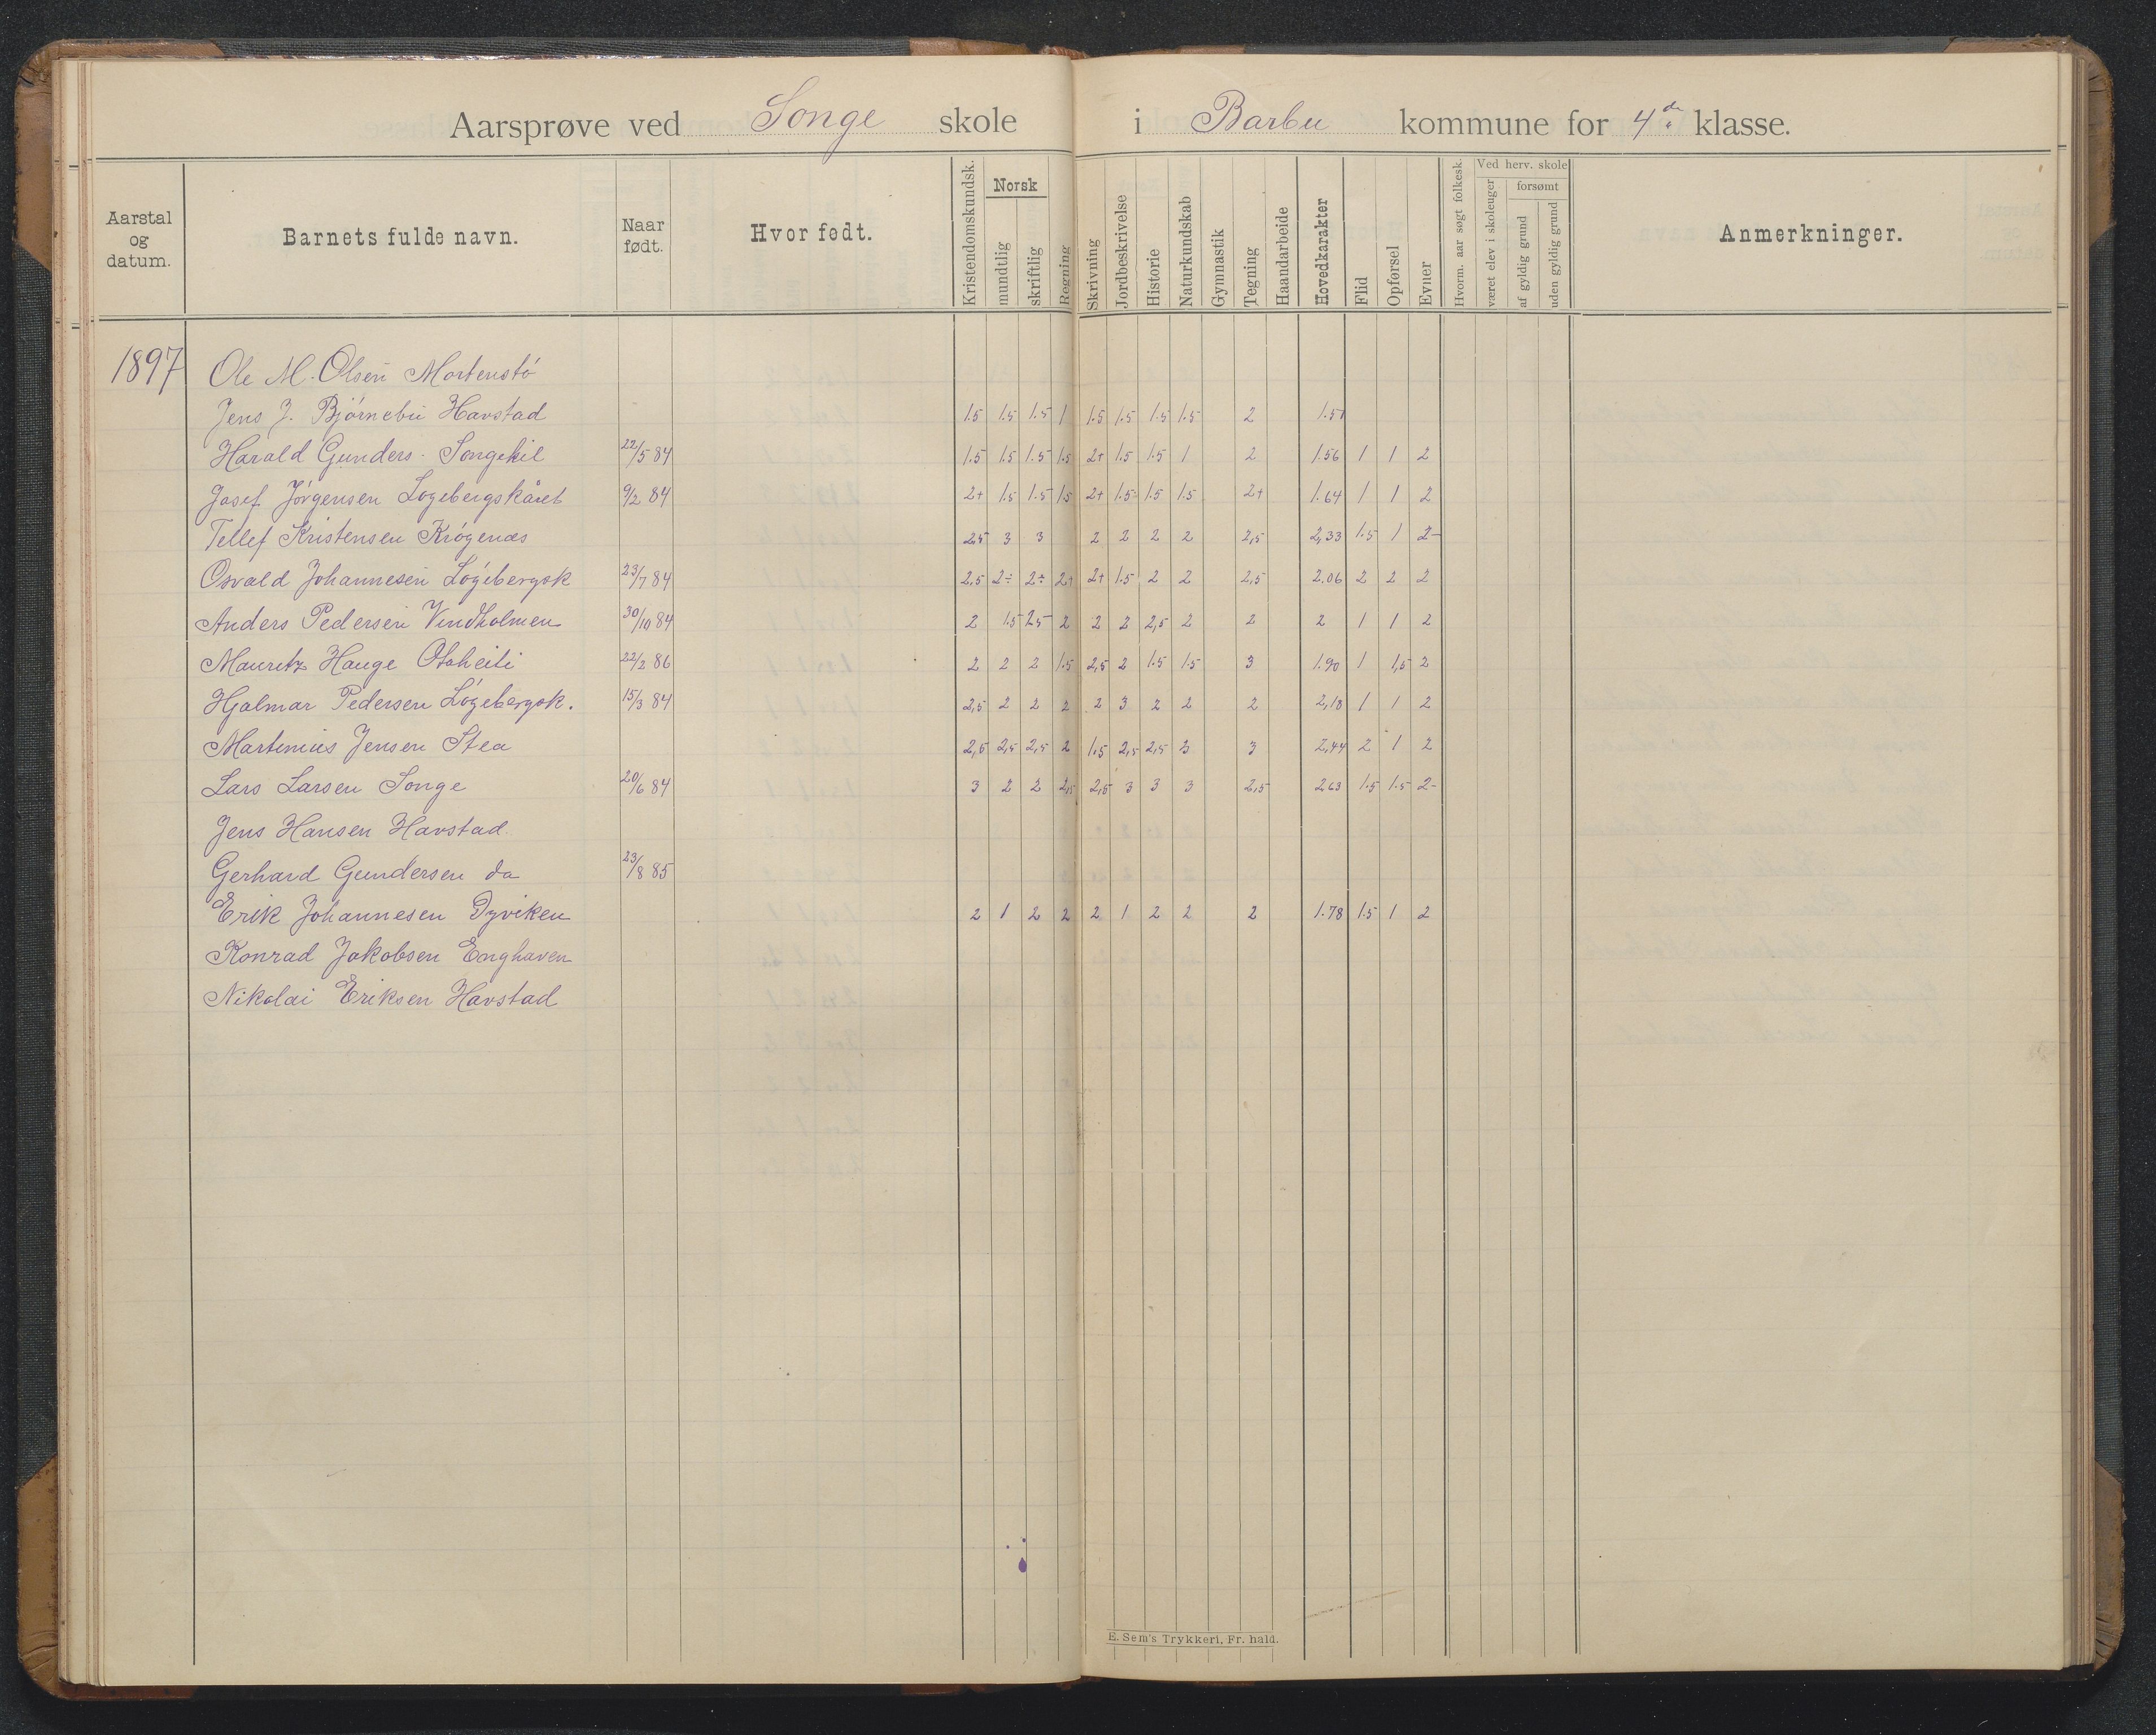 Aarsprøve ved Songe skole i Barbu kommune for 4de klasse.
Aarstal og datum. Barnets fulde navn. Naar født. Hvor født. Kristendomskundsk. Norsk mundtlig skriftlig Regning Skrivning Jordbeskrivelse Historie Naturkundskab Gymnastik Tegning Haandarbeide Hovedkarakter Flid Opførsel Evner Hvorm. aar søgt folkesk. Ved herv. skole været elev i skoleuger forsømt af gyldig grund uden gyldig grund Anmerkninger.
1897 Ole M. Olsen Mortenstø
Jens J. Bjørnebu Havstad 1.5 1.5 1.5 1 1.5 1.5 1.5 1.5 2 1.51
Harald Gunders. Songekil 22/5 84 1.5 1.5 1.5 1.5 2+ 1.5 1.5 1 2 1.56 1 1 2
Josef Jørgensen Logebergskåret 9/2 84 2+ 1.5 1.5 1.5 2+ 1.5 1.5 1.5 2+ 1.64 1 1 2
Tellef Kristensen Krøgenæs 2.5 3 3 2 2 2 2 2,5 2,33 1.5 1 2-
Osvald Johannesen Løgebergsk 23/7 84 2,5 2÷ 2÷ 2+ 2+ 1.5 2 2 2,5 2.06 2 2 2
Anders Pedersen Vindholmen 30/10 84 2 1.5 2.5 2 2 2 2,5 2 2 2 1 1 2
Mauritz Hauge Otaheiti 22/2 86 2 2 2 1.5 2,5 2 1.5 1.5 3 1.90 1 1,5 2
Hjalmar Pedersen Løgebergsk. 15/3 84 2,5 2 2 2 2 3 2 2 2 2,18 1 1 2
Martinius Jensen Stea 2,5 2,5 2,5 2 1.5 2,5 2,5 3 3 2,44 2 1 2
Lars Larsen Songe 20/6 84 3 2 2 2,5 2,5 3 3 3 2,5 2.63 1.5 1.5 2-
Jens Hansen Havstad.
Gerhard Gundersen do 23/8 85
Erik Johannesen Dyviken 2 1 2 2 2 1 2 2 2 1.78 1.5 1 2
Konrad Jakobsen Enghaven
Nikolai Eriksen Havstad
E. Sem's Trykkeri, Fr. hald.